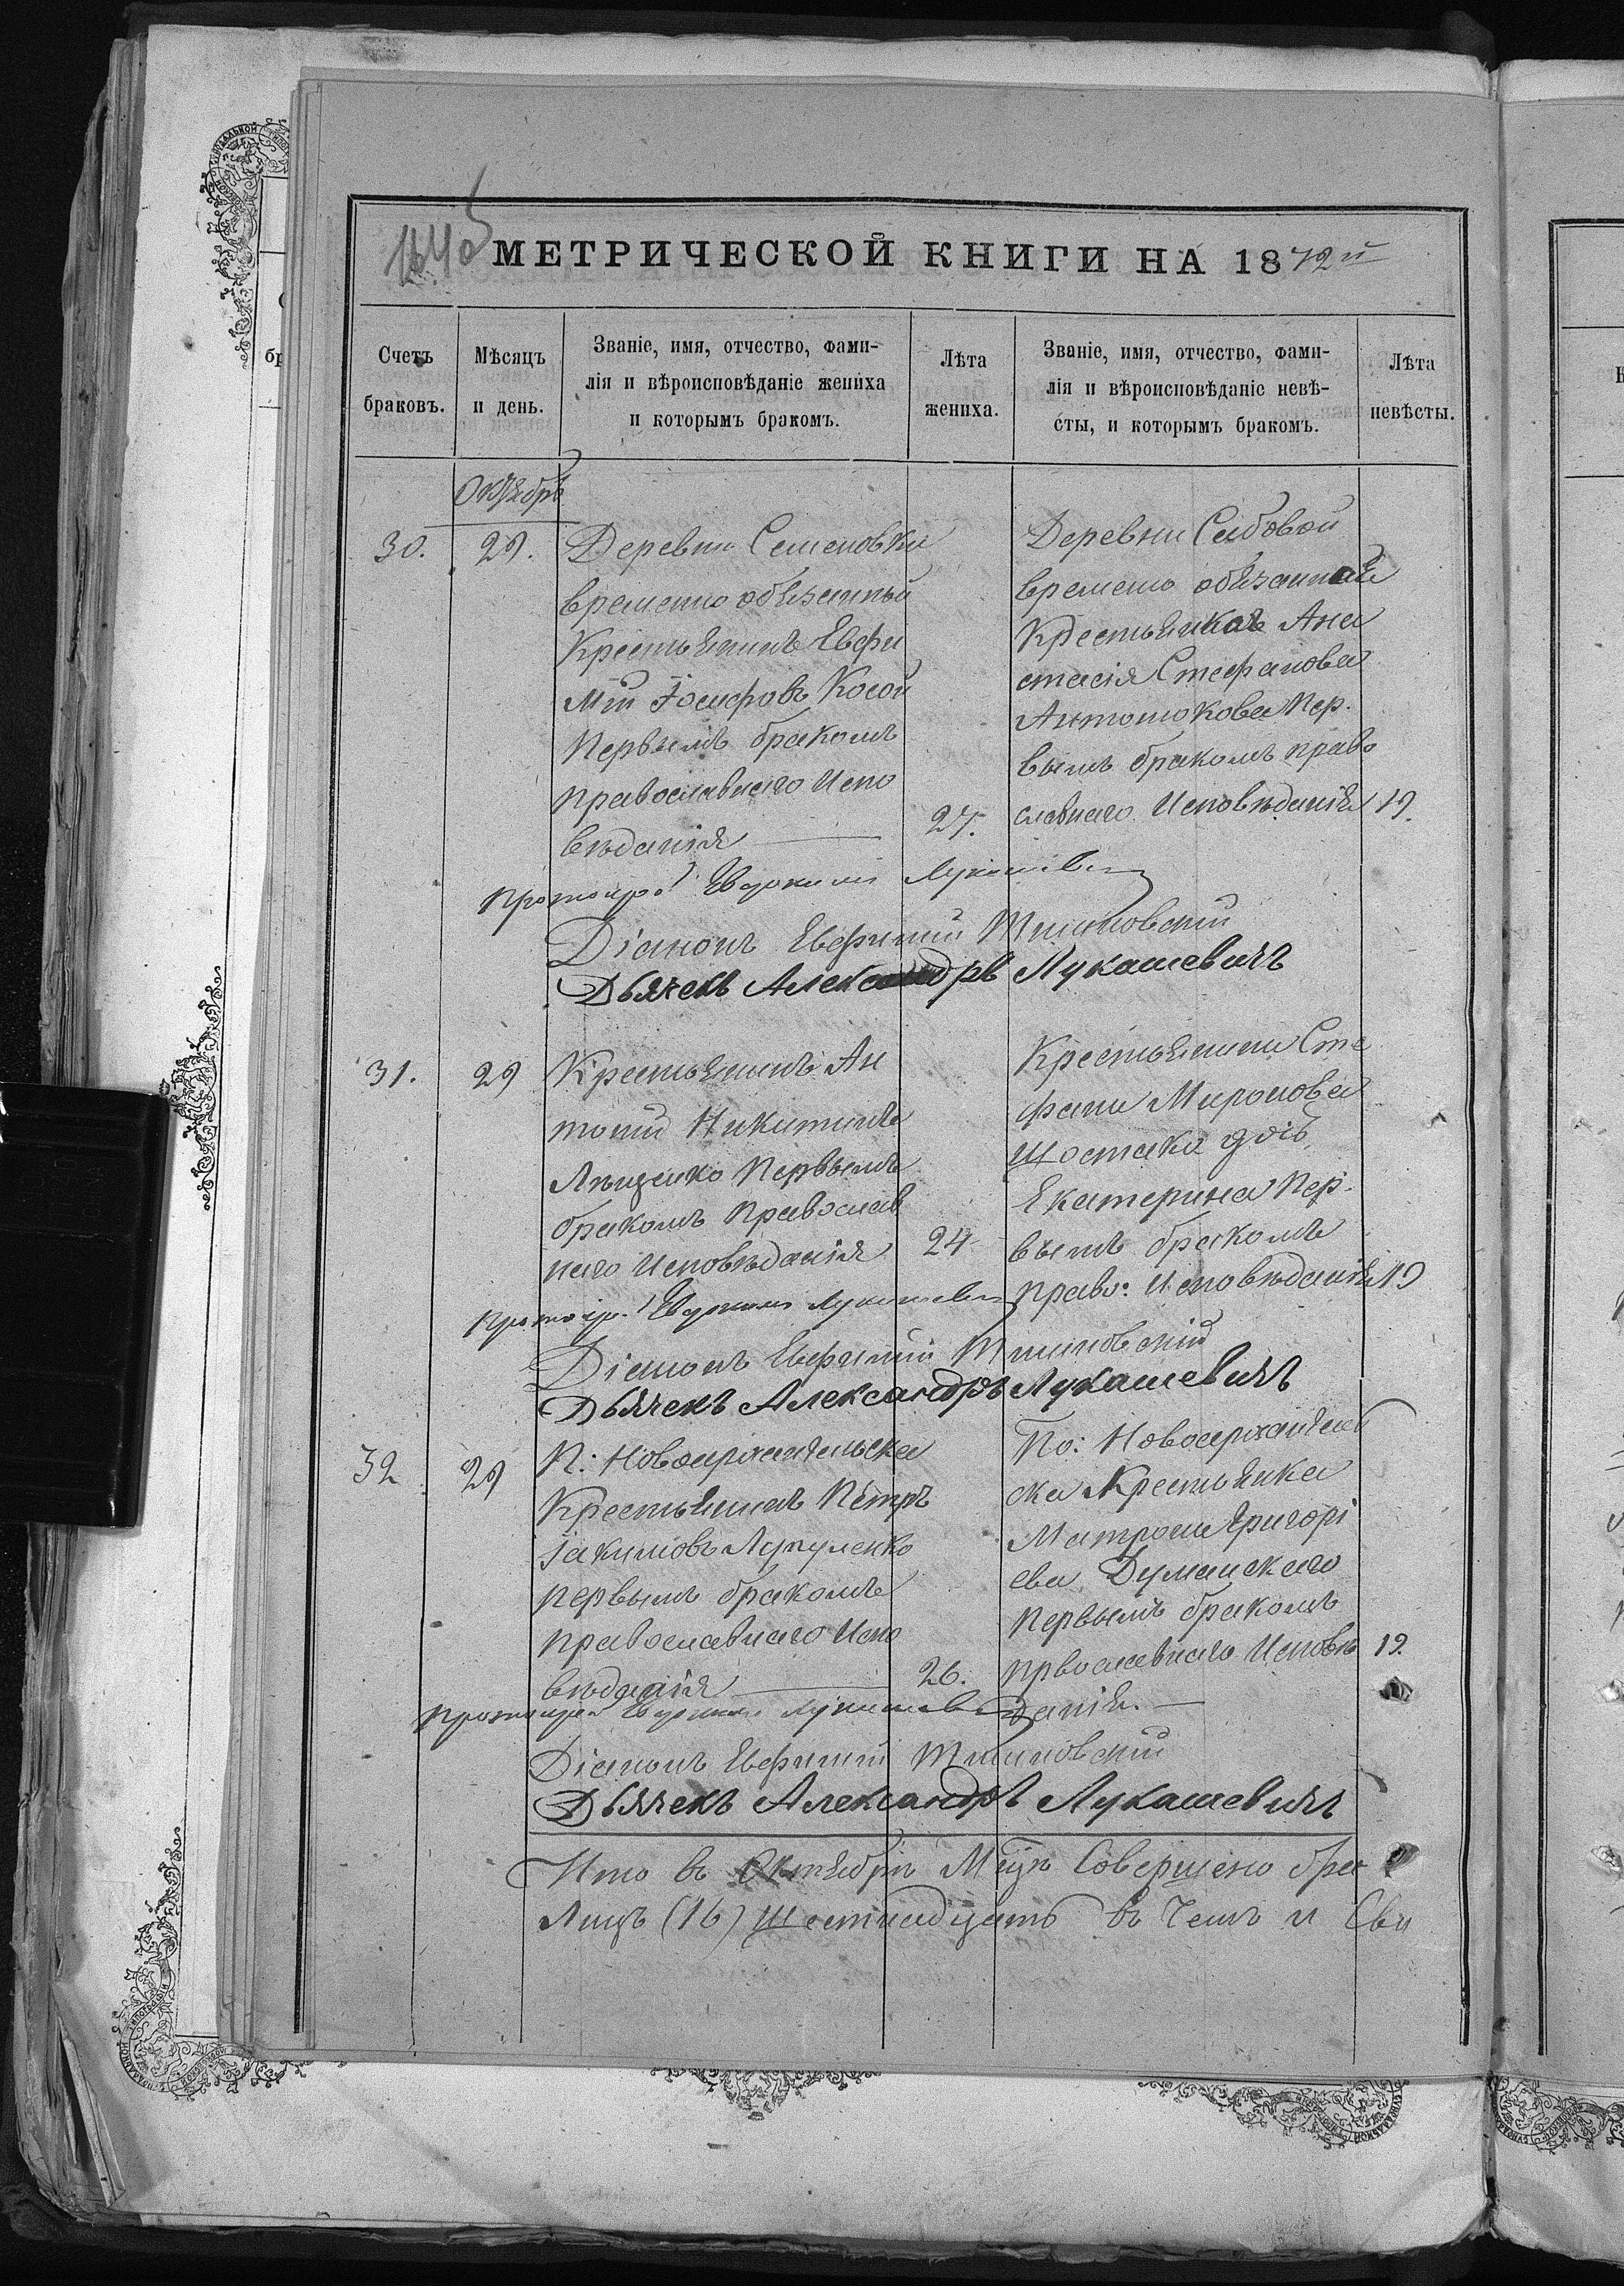 МЕТРИЧЕСКОЙ КНИГИ НА 1872й
Счетъ браковъ.
Мѣсяцъ и день.
Званіе, имя, отчество, фами-
лія и вѣроисповѣданіе жениха
и которымъ бракомъ.
Лѣта жениха.
Званіе, имя, отчество, фами-
лія и вѣроисповѣданіе невѣ-
сты, и которымъ бракомъ.
Лѣта невѣсты.
Октябрь
30. 29.
Деревни Семеновки
временно обязанный
Крестьянинъ Евфи
мій Іосифовъ Косой
Первымъ бракомъ
православнаго Испо
вѣданія
27.
Деревни
временно обязанной
Крестьянкою Ана
стасія Стефанова
Антонюкова Пер.
вымъ бракомъ право
славнаго Исповѣданія
19.
Протоіер. Евдокимъ Лукашевич
Діаконъ Евфимій
Дьячекъ Александръ Лукашевичъ
31. 29
Крестьянинъ Ан
тоній Никитинъ
Лященко Первымъ
бракомъ Православ
наго Исповѣданія
24
Крестьянина Сте
фана Миронова
Шостака дочь
Екатерина Пер.
вымъ бракомъ
Право: Исповѣданія
19
Протоіер. Евдокимъ Лукашевич
Діаконъ Евфимій
Дьячекъ Александръ Лукашевичъ
32 29
П: Новоархангельска
Крестьянинъ Петръ
Іакимовъ Лупуленко
первымъ бракомъ
православнаго Испо
вѣданія
26.
По: Новоархангель
ска Крестьянка
Матрона Григорі
ева Думанскаго
Первымъ бракомъ
првославнаго Исповѣ
данія.
19.
Протоіерей Евдокимъ Лукашевич
Діаконъ Евфимій
Дьячекъ Александръ Лукашевичъ
Что въ Октябрѣ Мцѣ Совершено бра
Лицъ (16) Шестнадцать въ чемъ и Сви